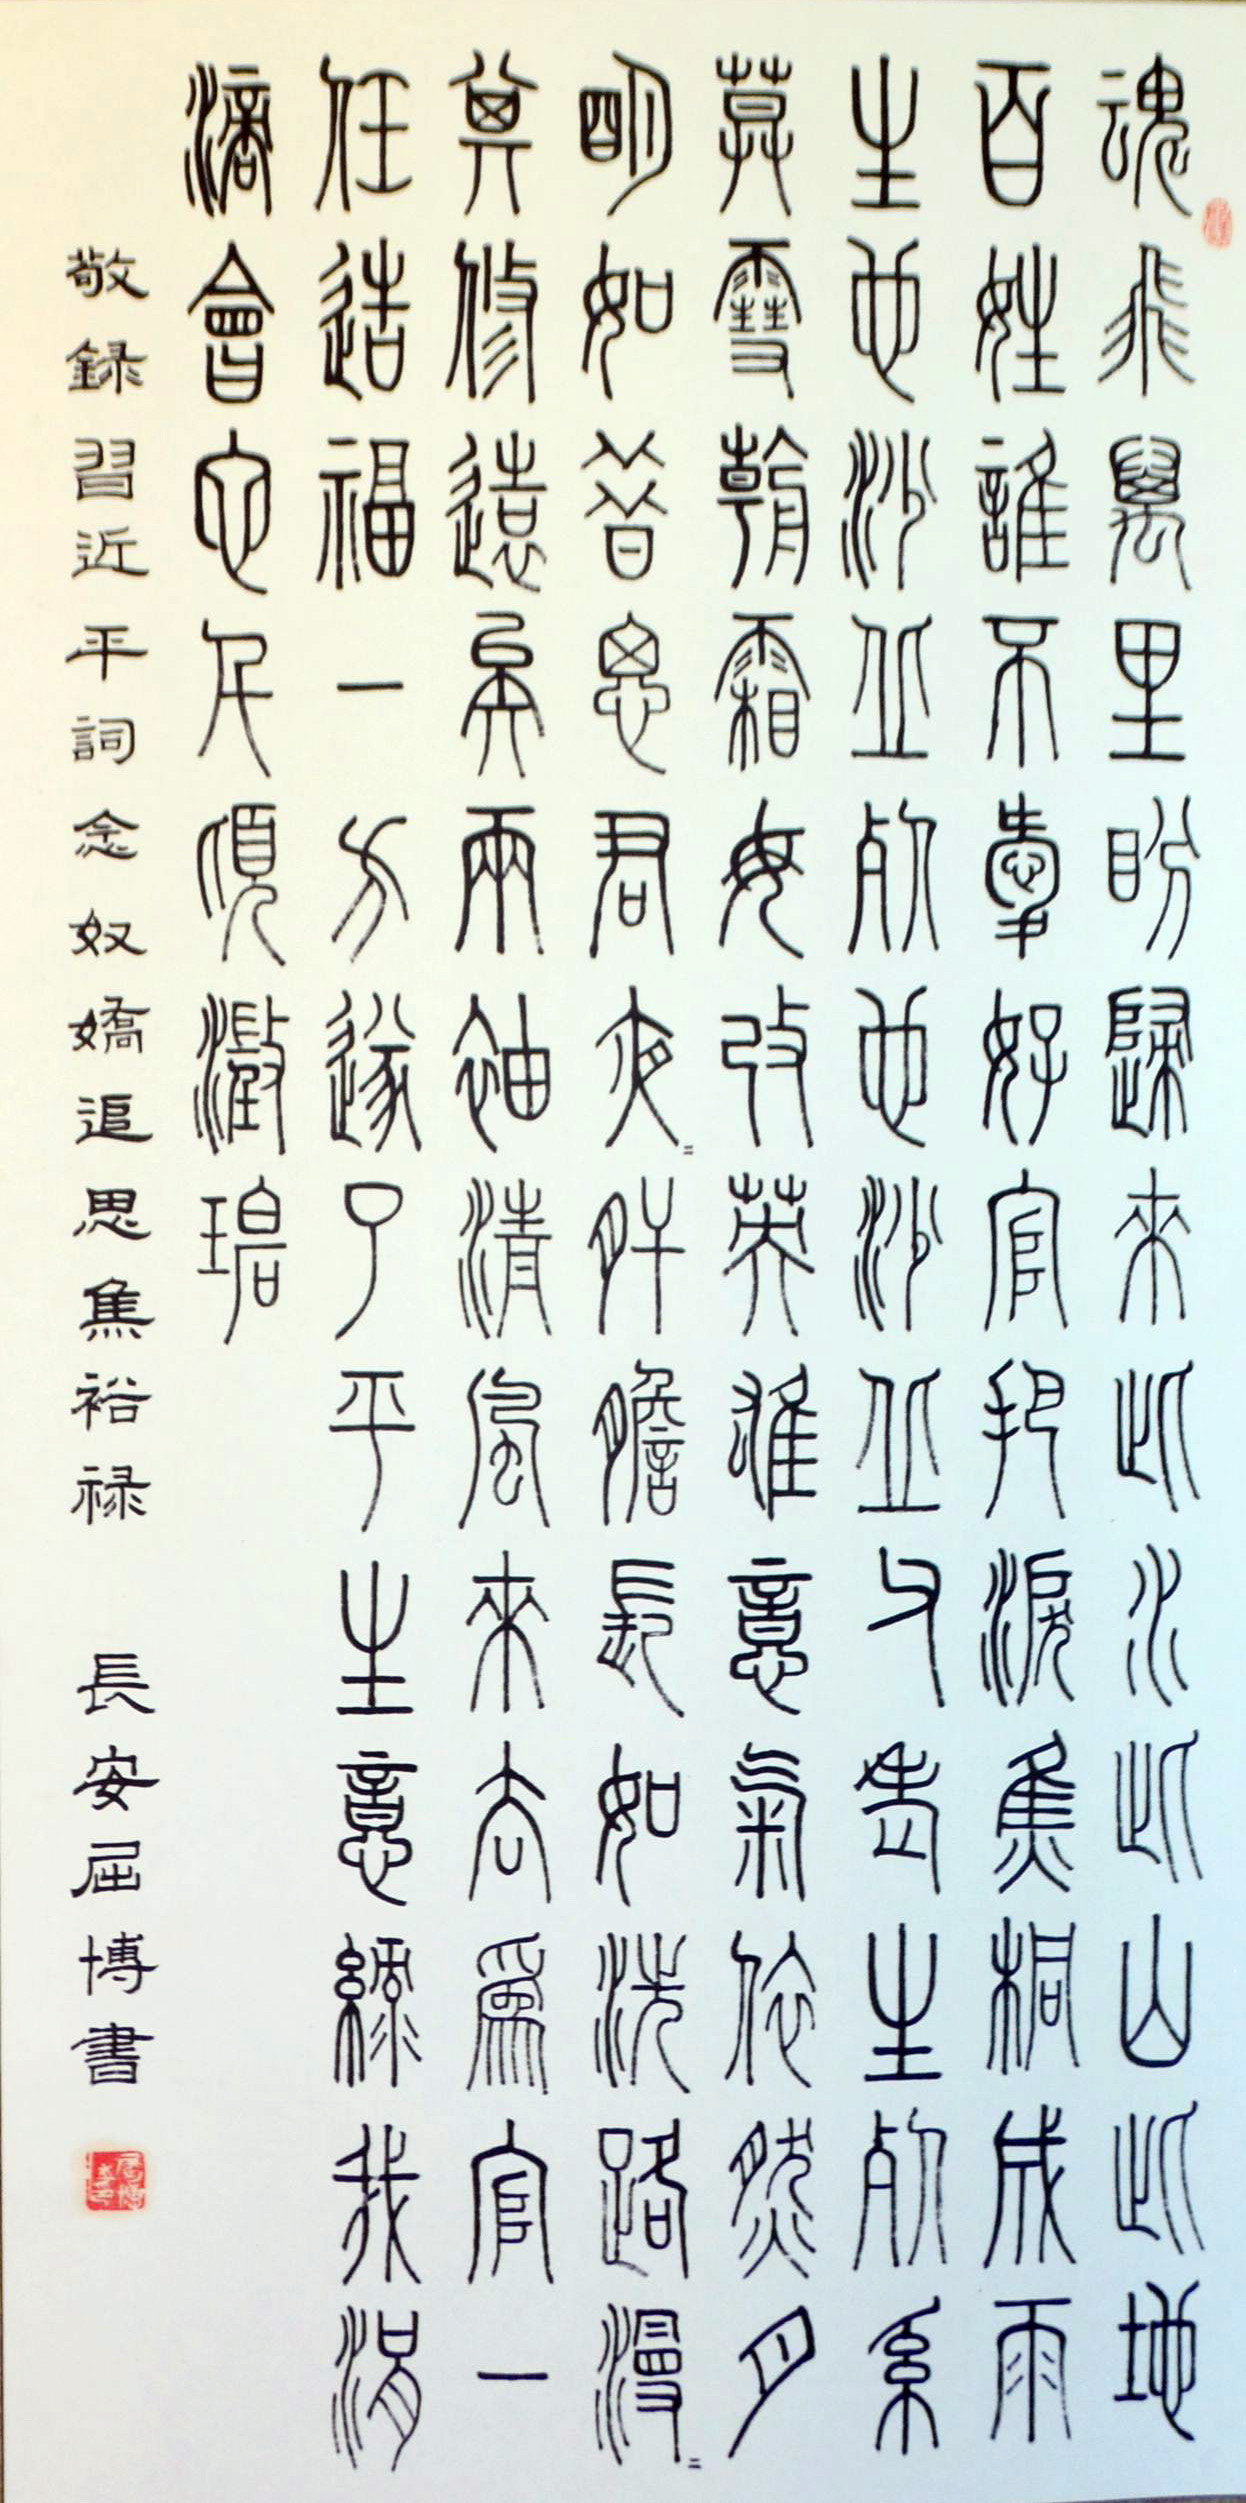 魂飛萬里盼歸來此水此山此地
百姓誰不愛好官把淚焦桐成雨
生也沙丘死也沙丘父老生死系
莫雪朝霜毋改英雄意氣依然月
明如昔思君夜〻肝膽長如洗路漫〻
其修遠矣兩袖清風來去為官一
任造福一方遂了平生意綠我涓
滴會它千頃澂碧
敬録習近平詞念奴嬌追思焦裕禄 長安屈博書